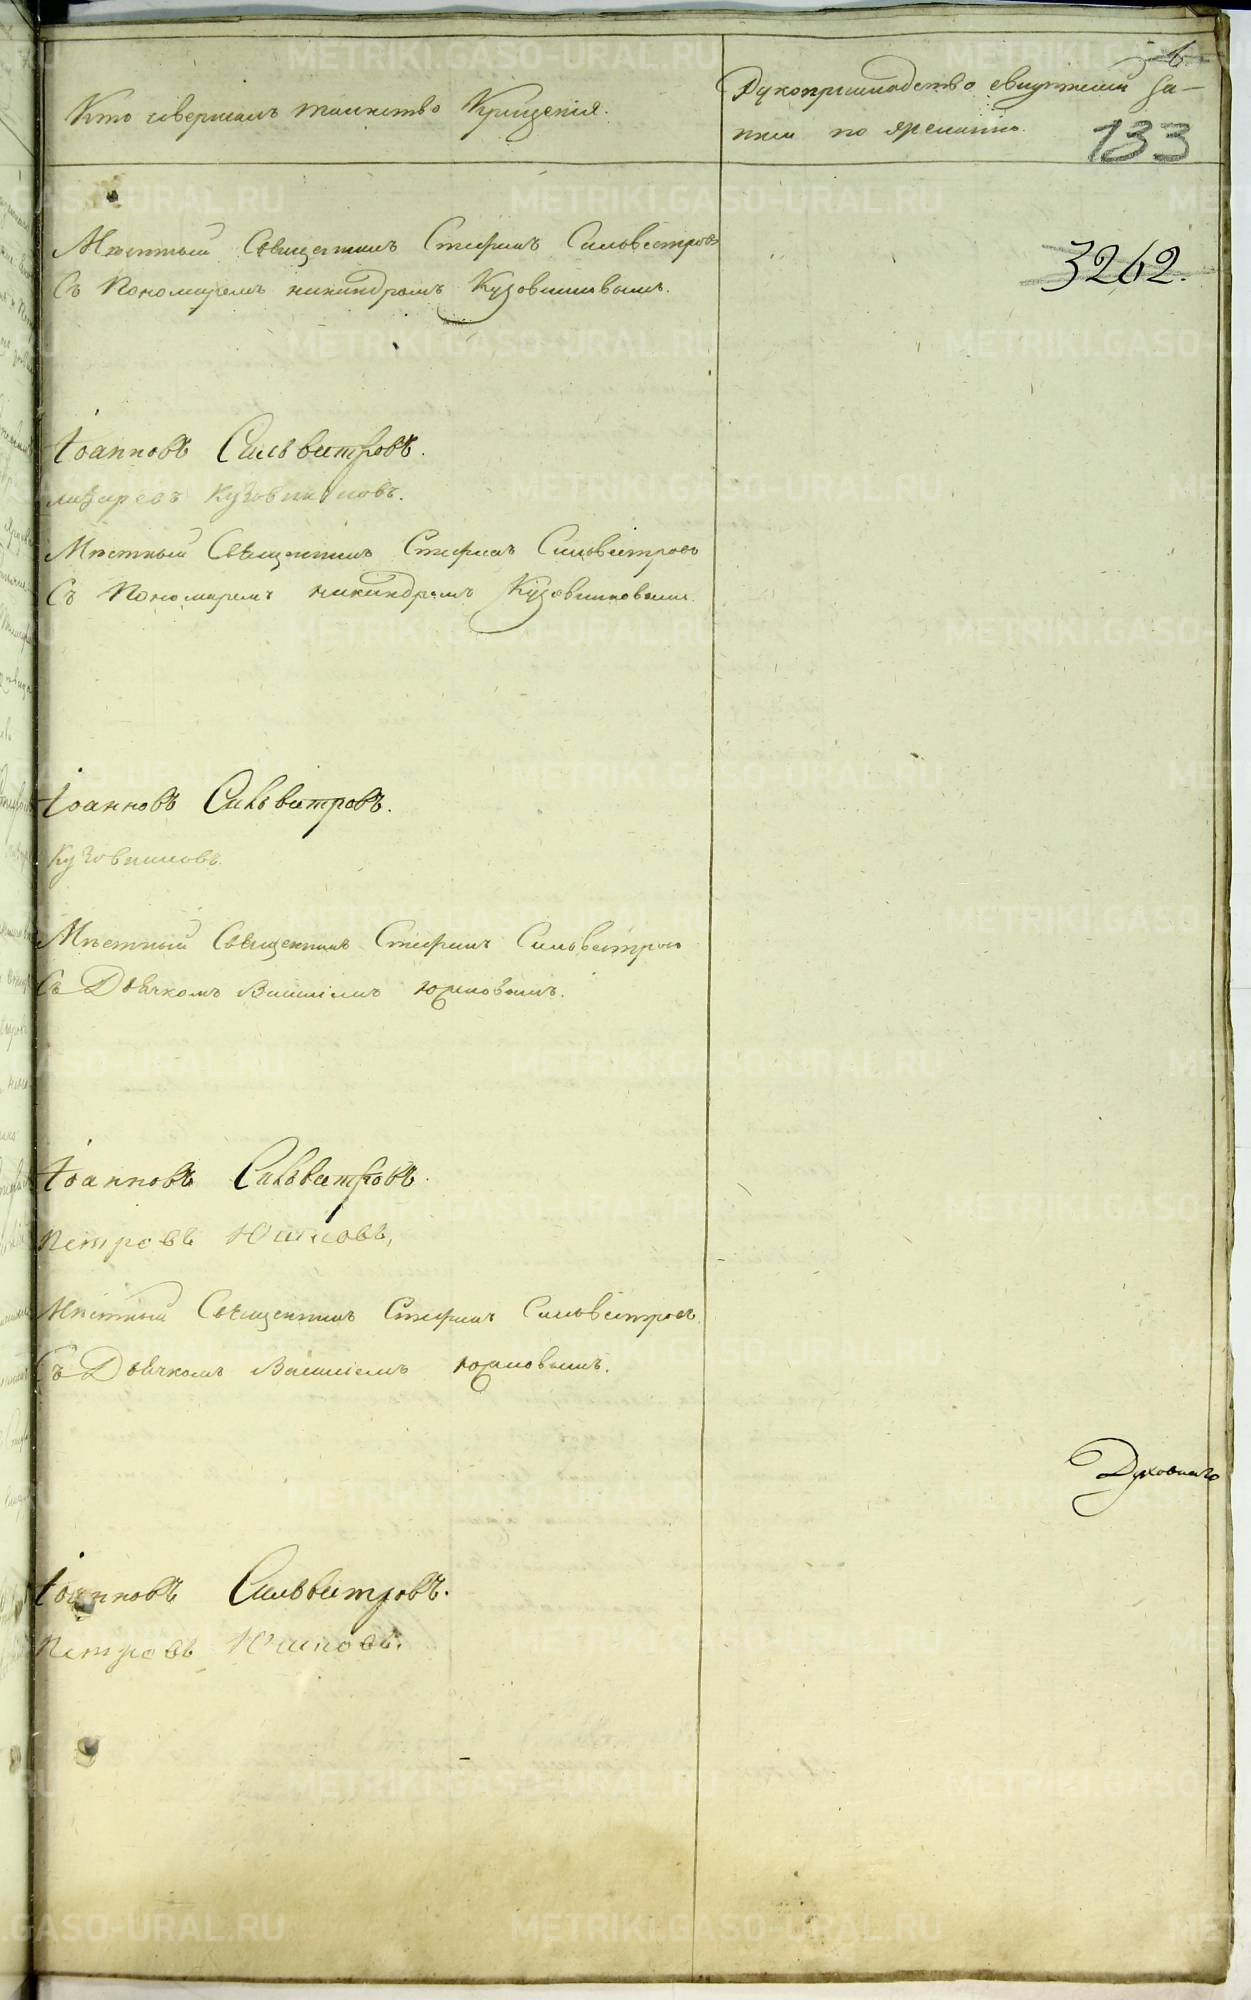 6
133
Кто совершалъ таинство Крещенія.
Рукоприкладство свидетелей за-
писи по желанію.
Местный Священникъ Стефанъ Сильвестровъ
Съ Пономаремъ никандромъ Кузовниковымъ.
3262.
Іоанновъ Сильвестровъ.
лазаревъ Кузовниковъ.
Местный Священникъ Стефанъ Сильвестровъ
Съ Пономаремъ никандромъ Кузовниковымъ
Іоанновъ Сильвестровъ.
Кузовниковъ
Местный Священникъ Стефанъ Сильвестровъ
Съ Дьячкомъ Василіемъ
Іоанновъ Сильвестровъ.
Петровъ
Местный Священникъ Стефанъ Сильвестровъ
Съ Дьячкомъ Василіемъ
Духовнаго
Іоанновъ Сильвестровъ.
Петровъ
METRIKI.GASO-URAL.RU